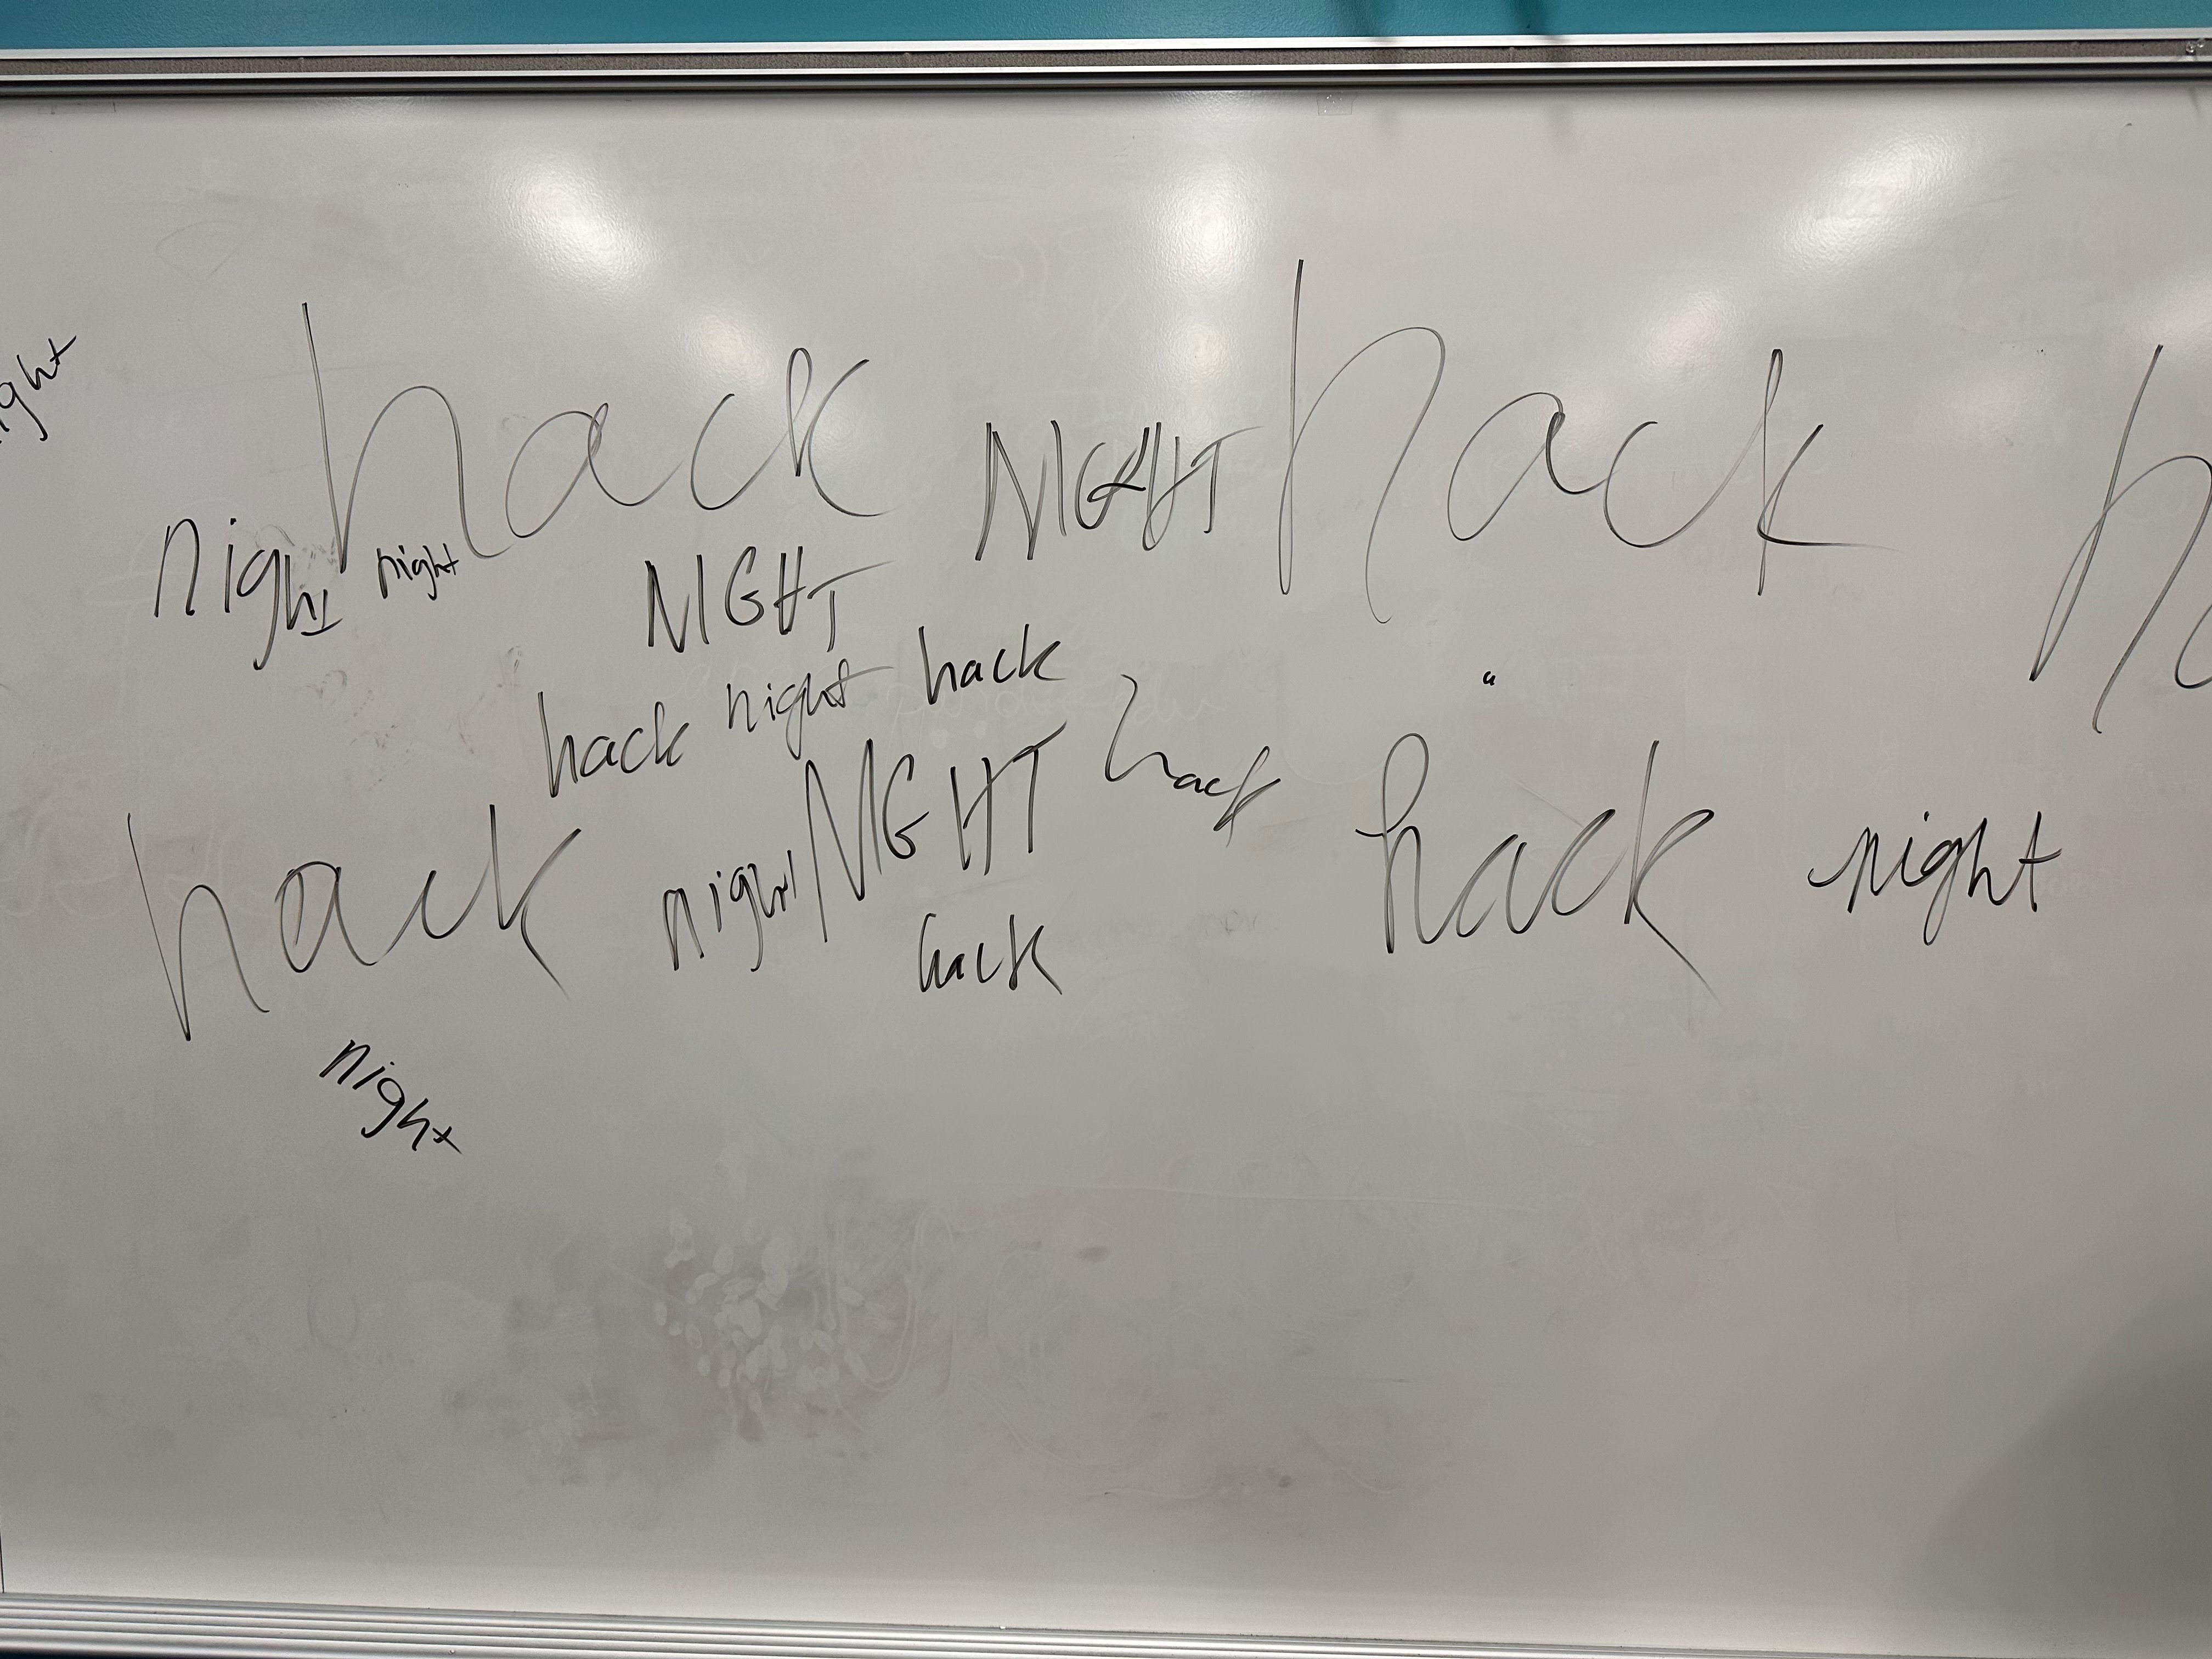 ght
hack NIGHT hack h
night night
NIGHT
hack night hack
hack night NIGHT hack hack night
hack
night